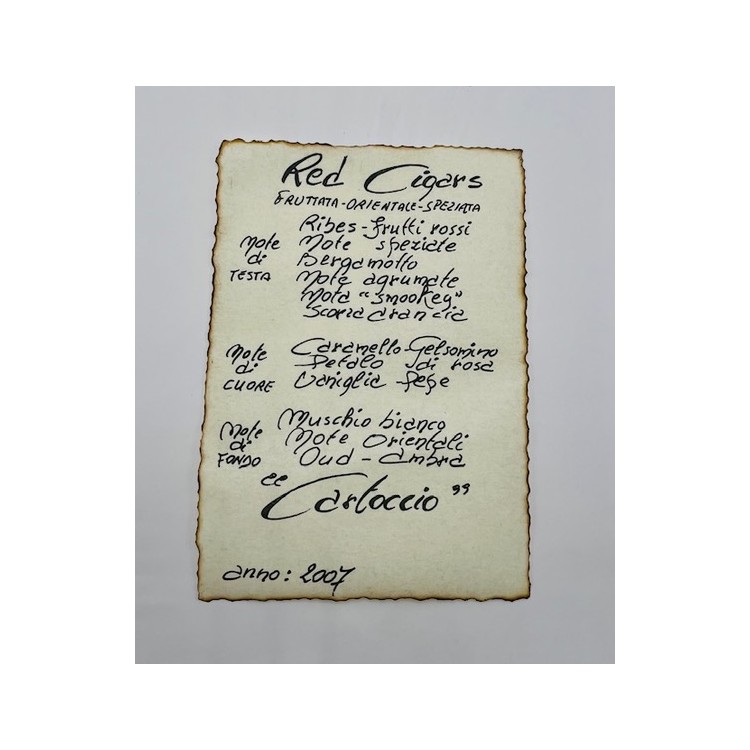 Red Cigars
FRUTTATA-ORIENTALE-SPEZIATA
Ribes-frutti rossi
Note Note speziate
di Bergamotto
TESTA Note agrumate
Nota "smookey"
Scorza arancia
Note Caramello-Gelsomino
di Petalo di rosa
CUORE Vaniglia pepe
Note Muschio bianco
di Note Orientali
FONDO Oud-ambra
"Cartoccio"
anno: 2007